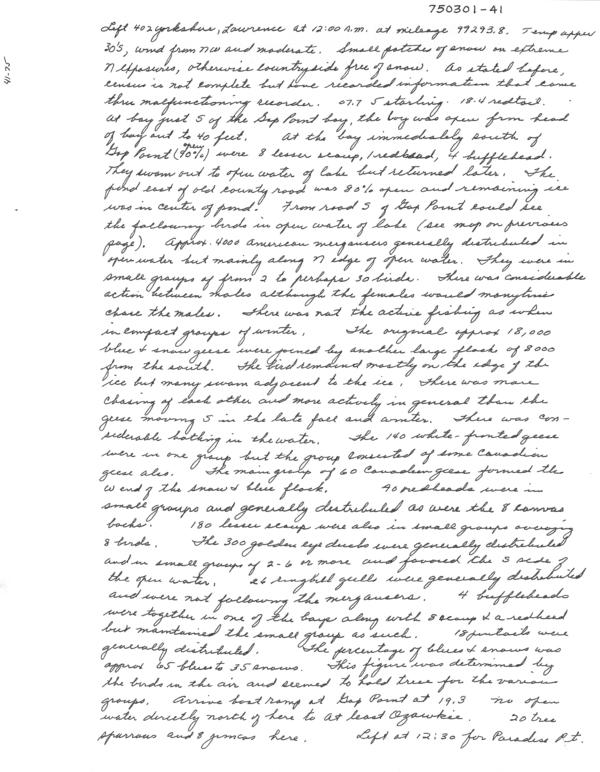 750301-41
41-75
Left 402 Yorkshire, Lawrence at 12:00 A.M. at mileage 99293.8. Temp upper
30's, wind from NW and moderate. Small patches of snow on extreme
N exposures, otherwise countryside free of snow. As stated before,
census is not complete but have recorded information that came
thru malfunctioning recorder. 07.7 5 starling. 18.4 redtail.
At bay just S of the Gap Point bay, the bay was open from head
of bay out to 40 feet. At the bay immediately south of
Gap Point (90% open) were 8 lesser scaup, 1 redhead, 4 bufflehead.
They swam out to open water of lake but returned later. The
pond east of old county road was 80% open and remaining ice
was in center of pond. From road S of Gap Point could see
the following birds in open water of lake (see map on previous
page). Approx. 4000 American mergansers generally distributed in
open water but mainly along N edge of open water. They were in
small groups of from 2 to perhaps 30 birds. There was considerable
action between males although the females would manytime
chase the males. There was not the active fishing as when
in compact groups of winter. The original approx 18,000
blue & snow geese were joined by another large flock of 8000
from the south. The bird remained mostly on the edge of the
ice but many swam adjacent to the ice. There was more
chasing of each other and more actively in general than the
geese moving S in the late fall and winter. There was con-
siderable bathing in the water. The 140 white-fronted geese
were in one group but the group consisted of some Canadian
geese also. The main group of 60 Canadian geese formed the
W end of the snow & blue flock. 40 redheads were in
small groups and generally distributed as were the 8 canvas
backs. 180 lesser scaup were also in small groups averaging
8 birds. The 300 golden eye ducks were generally distributed
and in small groups of 2-6 or more and favored the S side of
the open water. 26 ringbill gulls were generally distributed
and were not following the mergansers. 4 buffleheads
were together in one of the bays along with 8 scaup & a redhead
but maintained the small group as such. 18 pintails were
generally distributed. The percentage of blues & snows was
approx 65 blues to 35 snows. This figure was determined by
the birds in the air and seemed to hold true for the various
groups. Arrive boat ramp at Gap Point at 19.3 no open
water directly north of here to at least Ozawkie. 20 tree
sparrows and 8 juncos here. Left at 12:30 for Paradise Pt.